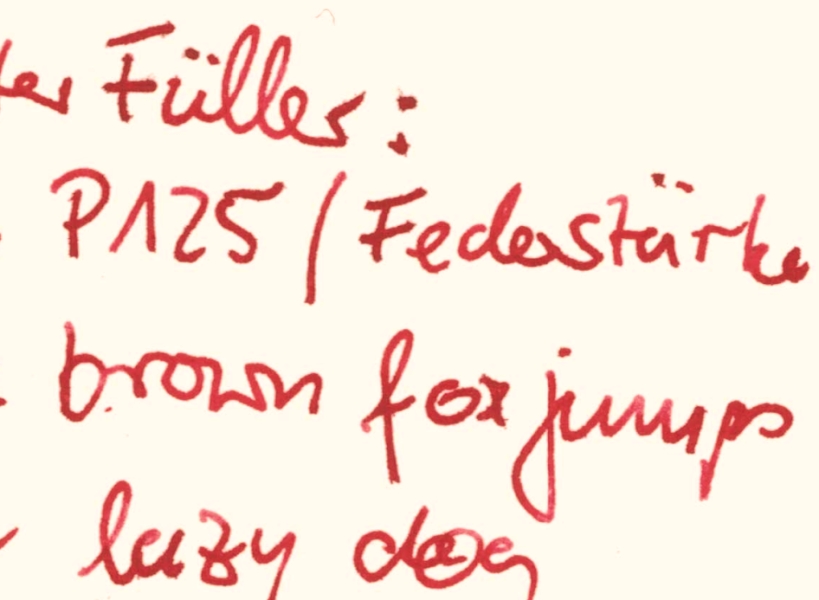 Füller:
P125 / Federstärke
brown fox jumps
lazy dog